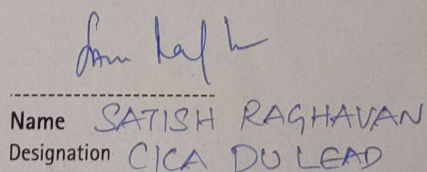 Name SATISH RAGHAVAN
Designation CICA DU LEAD